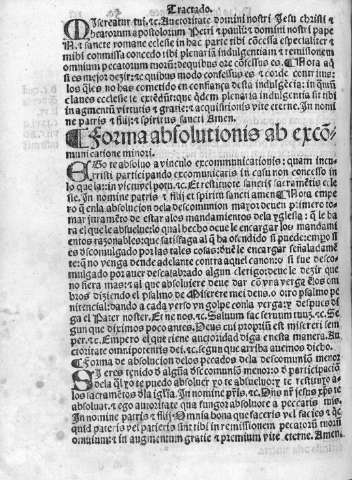 Tractado.
Misereatur tui. ⁊c. Auctoritate domini nostri Jesu christi ⁊
beatorum apostolorum Petri ⁊ pauli: ⁊ domini nostri pape
N. ⁊ sancte romane eclesie in hac parte tibi cōcessa especialiter ⁊
mibi commissa concedo tibi plenariā indulgentiam ⁊ remissionem
omnium peccatorum tuorū: dequibus ore confessus es. Mora aq̄
si es mejor dezir: de quibus modo confessus es ⁊ corde contritus:
los q̄les no has cometido en confiança desta indulgēcia: in quan
claues ecclesie te extēdūt: que ādem plenaria indulgentia sit tibi
in augmentū virtutis ⁊ gratie: ⁊ acquisitionis vite eterne. In nomi
ne patris ⁊ filij: ⁊ spiritus sancti Amen.
Forma absolutionis ab excō-
municatione minori.
Ego te absoluo a vinculo excommunicationis: quam incu-
rristi participando excomunicatis in casu non concesso in
lo que la: in vicuvel potu. ⁊c. Et restituo te sanctis sacramētis ecle
sie. In nomine patris ⁊ filij et spiritus sancti amen. Mora empe
ro q̄ enla absolucion dela descomuniō mayor de ue primero to
mar juramēto de estar alos mandamientos dela yglesia: q̄ le ba
ra el que le absuelue: lo qual becho deue le encargar los mandami
entos razonables: que satisfaga al q̄ ha ofendido si puede: empo si
es descomulgado por las tales cosas: deue le encargar señaladamē
te: q̄ no venga dende adelante contra aquel canon: ⁊ si fue desco
mulgado por auer descalabrado algun clerigo: deue le dezir que
no fiera mas: ⁊ al que absoluiere deue dar cō vna verga ēlos om
bros diziendo el psalmo de Miserere mei deus. o otro psalmo pe
nitencial: dando a cada verso vn golpe conla verga: ⁊ despues di
ga el Pater noster. Et ne nos. ⁊c. Saluum fac seruum tuū. ⁊c. Se
gun que diximos poco antes. Deus cui propriū est misereri sem
per. ⁊c. Empero el que tiene auctoridad diga enesta manera. Au
ctoritate omnipotentis dei. ⁊c. segun que arriba auemos dicho.
Forma de absolucion delos pecados dela descomuniō menor
Si eres tenido d̄ algūa descomuniō menor: o d̄ participaciō
dela q̄l yo te puedo absoluer yo te absueluo: ⁊ te restituyo a
los sacramētos d̄la iglia. In nomine pr̄is. ⁊c. Dn̄s nr̄ jesus xp̄s te
absoluat. ⁊ ego autoritate qua fungor absoluo te a peccatis tuis.
In nomine patris ⁊ filij. Omnia bona que faceris vel facies ⁊ q̄e
quid pateris vel patieris sint tibi in remissionem peccatorū tuorū
omnium: ⁊ in augmentum gratie ⁊ premium vite eterne. Amen.